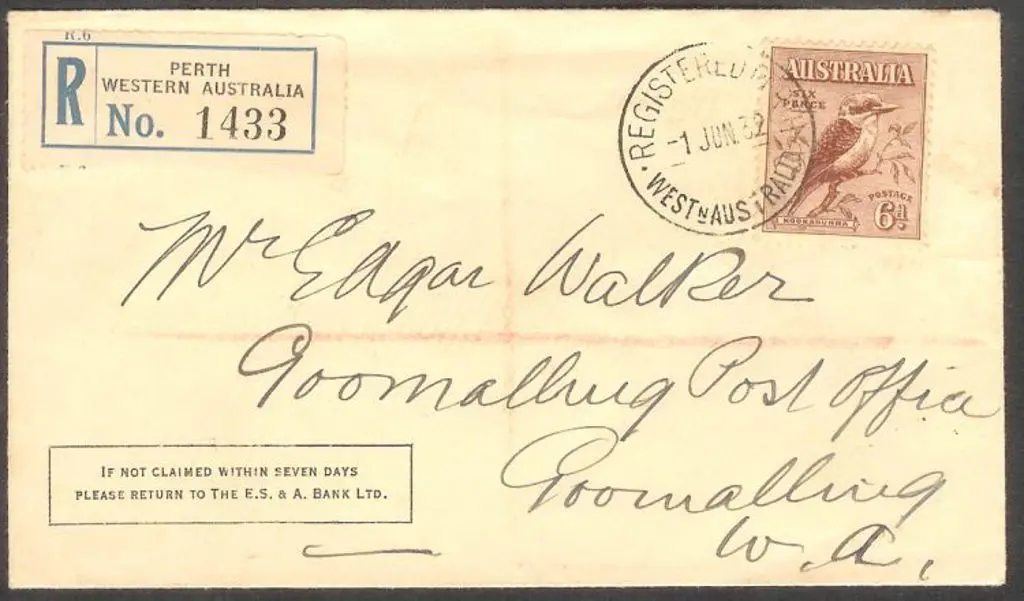 R.6
R
PERTH
WESTERN AUSTRALIA
No. 1433
REGISTERED
-1 JUN.32
WESTN AUSTRALIA
AUSTRALIA
SIX
PENCE
POSTAGE
6d
KOOKABURRA
Mr Edgar Walker
Goomalling Post Office
Goomalling
W.A.
IF NOT CLAIMED WITHIN SEVEN DAYS
PLEASE RETURN TO THE E.S. & A. BANK LTD.